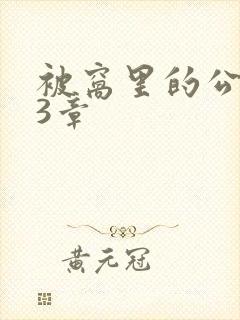 被窝里的公
3章
黄元冠